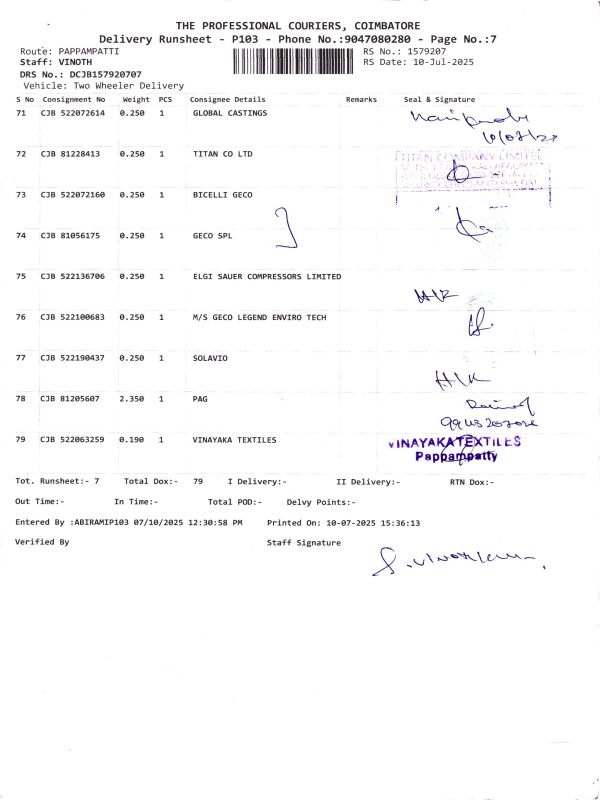 THE PROFESSIONAL COURIERS, COIMBATORE
Delivery Runsheet - P103 - Phone No.:9047080280 - Page No.:7
Route: PAPPAMPATTI RS No.: 1579207
Staff: VINOTH RS Date: 10-Jul-2025
DRS No.: DCJB157920707
Vehicle: Two Wheeler Delivery
S No Consignment No Weight PCS Consignee Details Remarks Seal & Signature
71 CJB 522072614 0.250 1 GLOBAL CASTINGS
72 CJB 81228413 0.250 1 TITAN CO LTD
TITAN COMPANY LIMITED
73 CJB 522072160 0.250 1 BICELLI GECO
74 CJB 81056175 0.250 1 GECO SPL
75 CJB 522136706 0.250 1 ELGI SAUER COMPRESSORS LIMITED
76 CJB 522100683 0.250 1 M/S GECO LEGEND ENVIRO TECH
77 CJB 522190437 0.250 1 SOLAVIO
78 CJB 81205607 2.350 1 PAG
79 CJB 522063259 0.190 1 VINAYAKA TEXTILES VINAYAKA TEXTILES
Pappampatty
Tot. Runsheet:- 7 Total Dox:- 79 I Delivery:- II Delivery:- RTN Dox:-
Out Time:- In Time:- Total POD:- Delvy Points:-
Entered By :ABIRAMIP103 07/10/2025 12:30:58 PM Printed On: 10-07-2025 15:36:13
Verified By Staff Signature